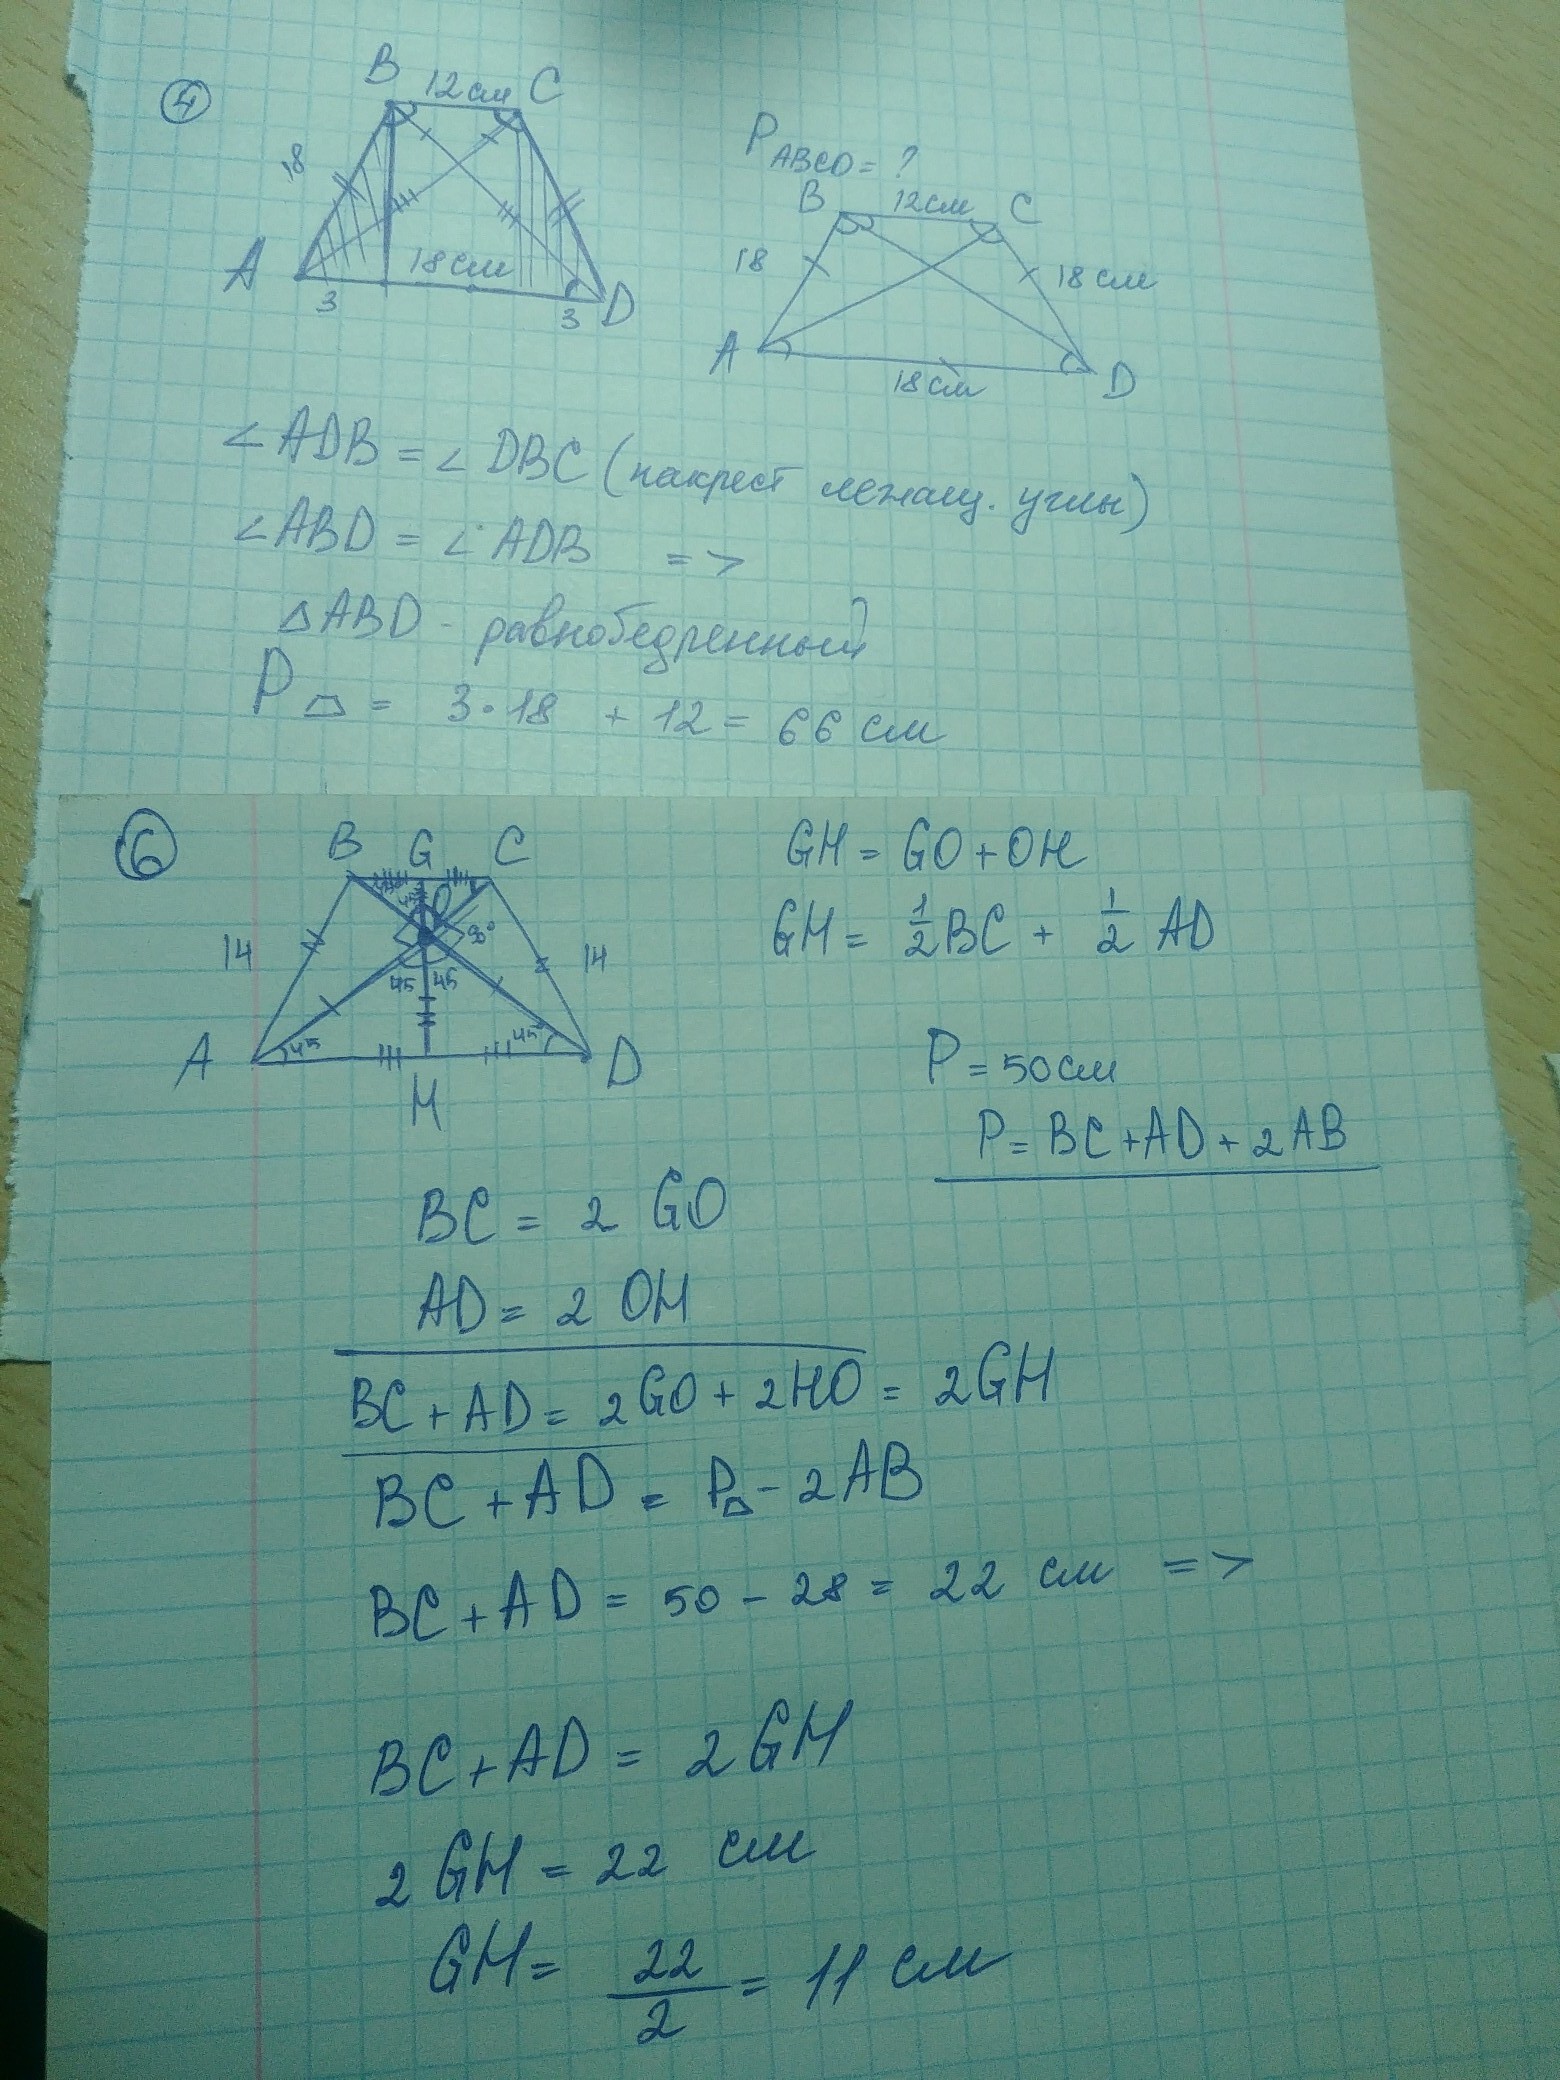 ④
B 12 см C
18
A 18 см
3 3 D
P ABCD = ?
B 12 см C
18 18 см
A 18 см D
∠ADB = ∠DBC (накрест лежащ. углы)
∠ABD = ∠ADB =>
△ABD - равнобедренный
P = 3·18 + 12 = 66 см
⑥
B G C
O
90°
14 14
45 45
45 45°
A D
H
GH = GO + OH
GH = 1/2 BC + 1/2 AD
P = 50 см
P = BC + AD + 2AB
BC = 2 GO
AD = 2 OH
BC + AD = 2GO + 2HO = 2GH
BC + AD = P - 2AB
BC + AD = 50 - 28 = 22 см =>
BC + AD = 2GH
2GH = 22 см
GH = 22/2 = 11 см